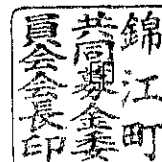 錦江町
共同募金委
員会会長印